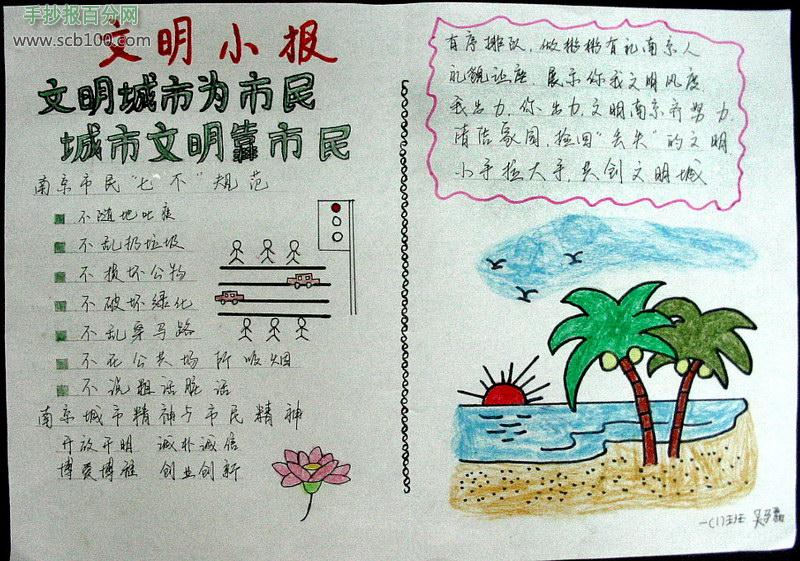 手抄报百分网
www.scb100.com
文明小报
文明城市为市民
城市文明靠市民
南京市民"七不"规范
不随地吐痰
不乱扔垃圾
不损坏公物
不破坏绿化
不乱穿马路
不在公共场所吸烟
不说粗话脏话
南京城市精神与市民精神
开放开明 诚朴诚信
博爱博雅 创业创新
有序排队，做彬彬有礼南京人
礼貌让座，展示你我文明风度
我出力，你出力，文明南京齐努力
清洁家园，捡回"丢失"的文明
小手拉大手，共创文明城
一(1)班 吴子